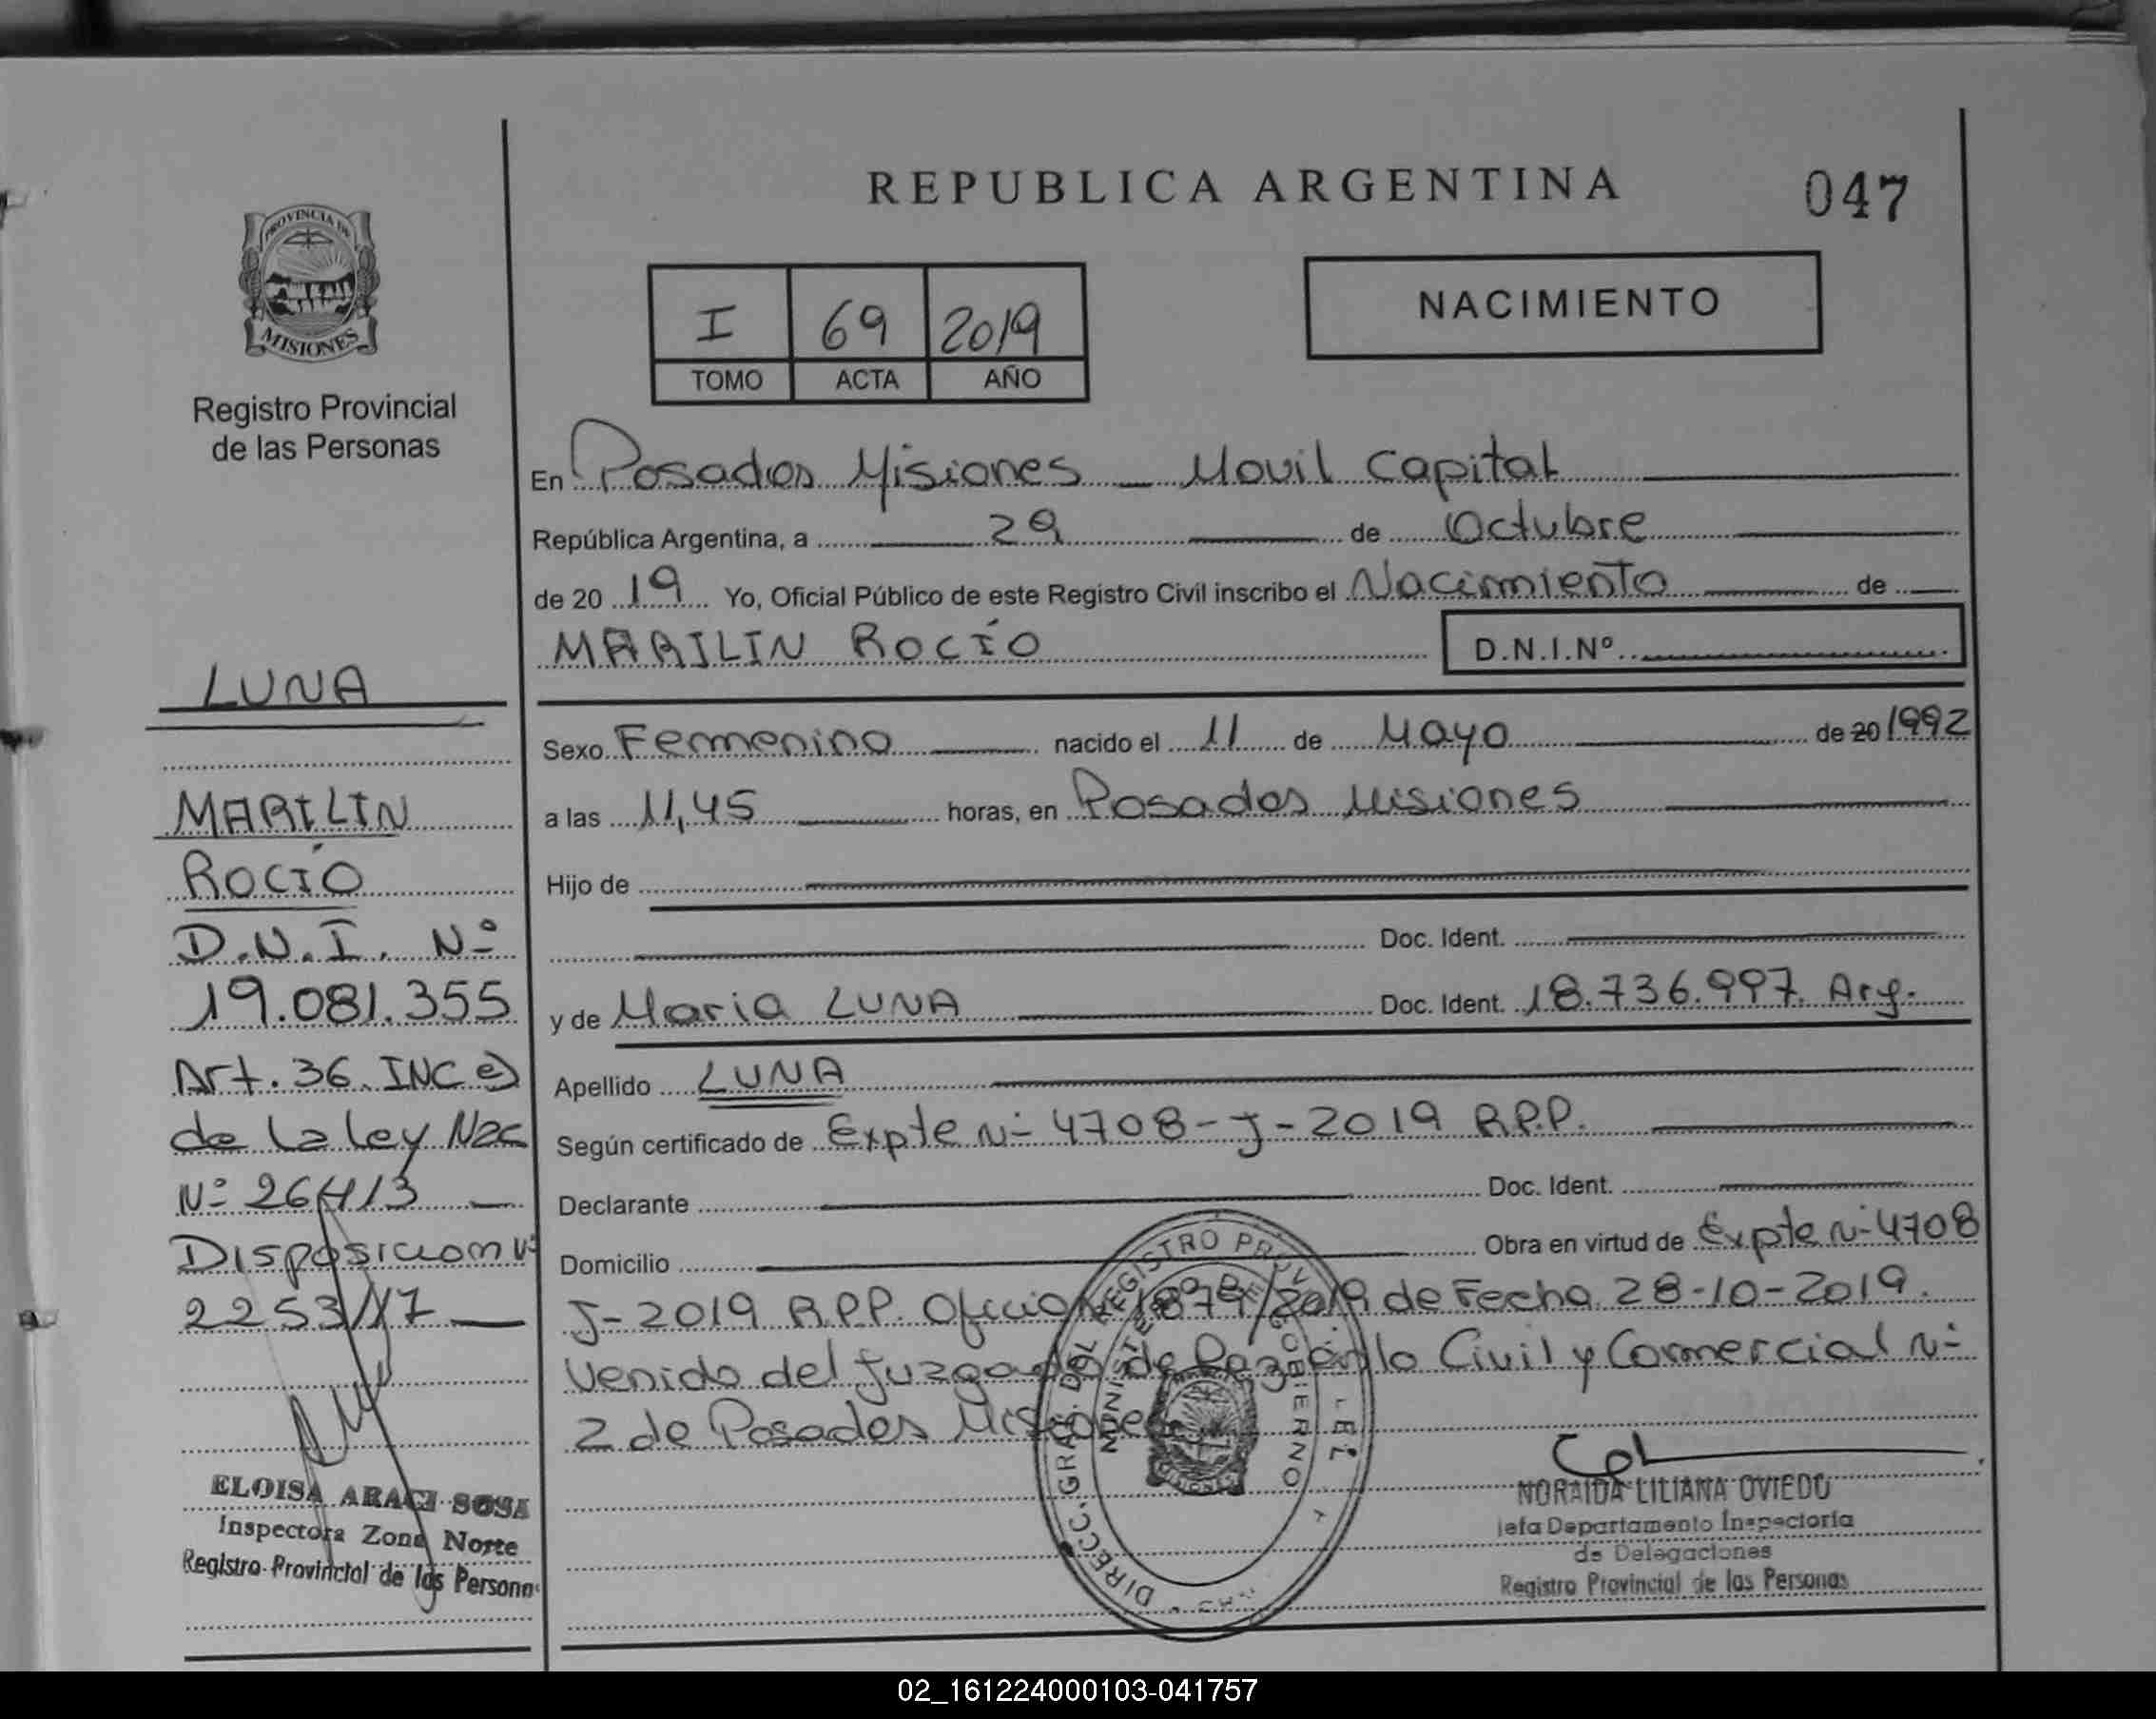 REPUBLICA ARGENTINA
047
PROVINCIA DE
MISIONES
Registro Provincial
de las Personas
I 69 2019
TOMO ACTA AÑO
NACIMIENTO
En Posadas Misiones - Movil Capital
República Argentina, a 29 de Octubre
de 20 19 Yo, Oficial Público de este Registro Civil inscribo el Nacimiento de
MARILIN ROCÍO D.N.I.Nº
Sexo Femenino nacido el 11 de Mayo de 20 1992
a las 11,45 horas, en Posadas Misiones
Hijo de
Doc. Ident.
y de Maria LUNA Doc. Ident. 18.736.997. Arg.
Apellido LUNA
Según certificado de Expte Nº 4708-J-2019 R.P.P.
Declarante Doc. Ident.
Domicilio Obra en virtud de Expte Nº 4708
J-2019 R.P.P. Oficio Nº 1879/2019 de Fecha 28-10-2019.
Venido del Juzgado de Paz en lo Civil y Commercial Nº
2 de Posadas Misiones
LUNA
MARILIN
ROCÍO
D.N.I. Nº
19.081.355
Art. 36 INC e)
de la ley Nac
Nº 26413
Disposicion Nº
2253/17
ELOISA ARACI SOSA
Inspectora Zona Norte
Registro Provincial de las Persona
DIRECC. GRAL. DEL REGISTRO
MINISTERIO DE GOBIERNO
MISIONES
NORAIDA LILIANA OVIEDO
Jefa Departamento Inspectoría
de Delegaciones
Registro Provincial de las Personas
02_161224000103-041757